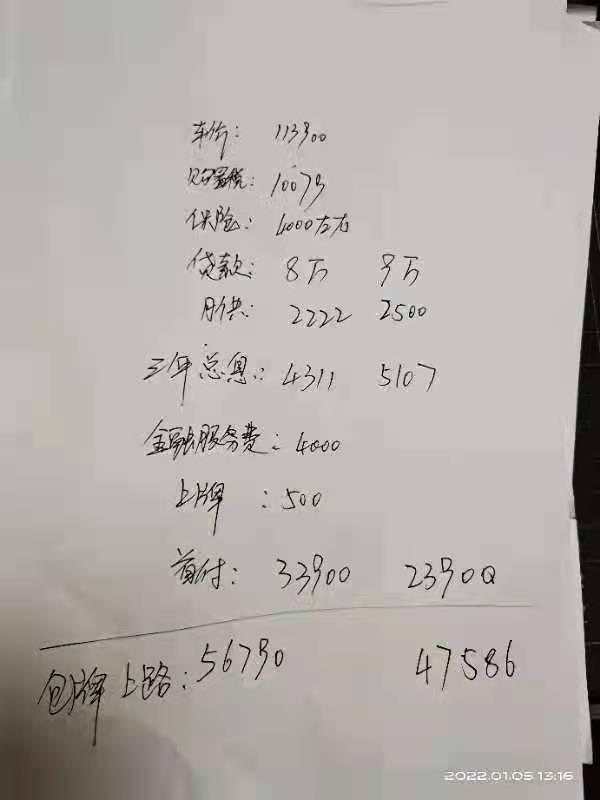 车价: 113900
购置税: 10079
保险: 4000左右
贷款: 8万 9万
月供: 2222 2500
三年总息: 4311 5107
金融服务费: 4000
上牌: 500
首付: 33900 23900
包牌上路: 56790 47586
2022.01.05 13:16